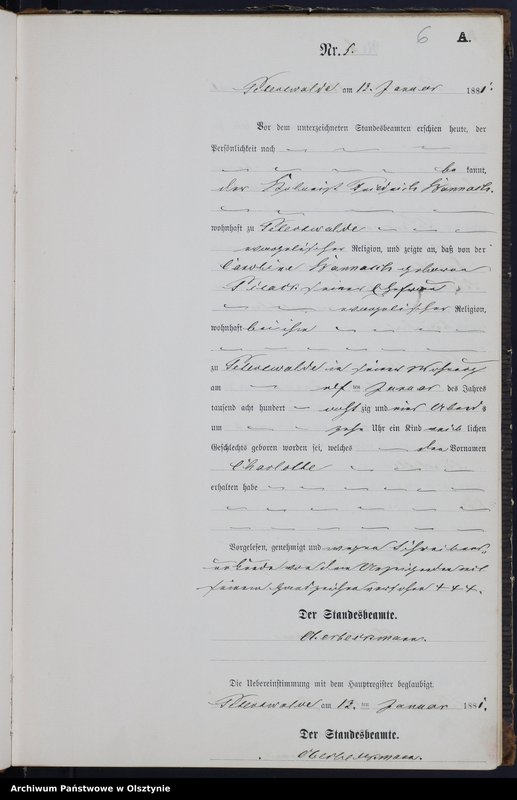 6 A.
Nr. 5.
Peterswalde am 13. Januar 1881.
Vor dem unterzeichneten Standesbeamten erschien heute, der
Persönlichkeit nach
bekannt,
der Friedrich
wohnhaft zu Peterswalde
evangelischer Religion, und zeigte an, daß von der
Caroline geborene
seiner Ehefrau
evangelischer Religion,
wohnhaft bei ihm
zu Peterswalde in seiner Wohnung
am elf ten Januar des Jahres
tausend acht hundert achtzig und Abends
um zehn Uhr ein Kind weiblichen
Geschlechts geboren worden sei, welches den Vornamen
Charlotte
erhalten habe
Vorgelesen, genehmigt und wegen Schreibens-
unkunde von dem Anzeigenden mit
seinem Handzeichen versehen + + +.
Der Standesbeamte.
Die Uebereinstimmung mit dem Hauptregister beglaubigt.
Peterswalde am 13. ten Januar 1881.
Der Standesbeamte.
Archiwum Państwowe w Olsztynie